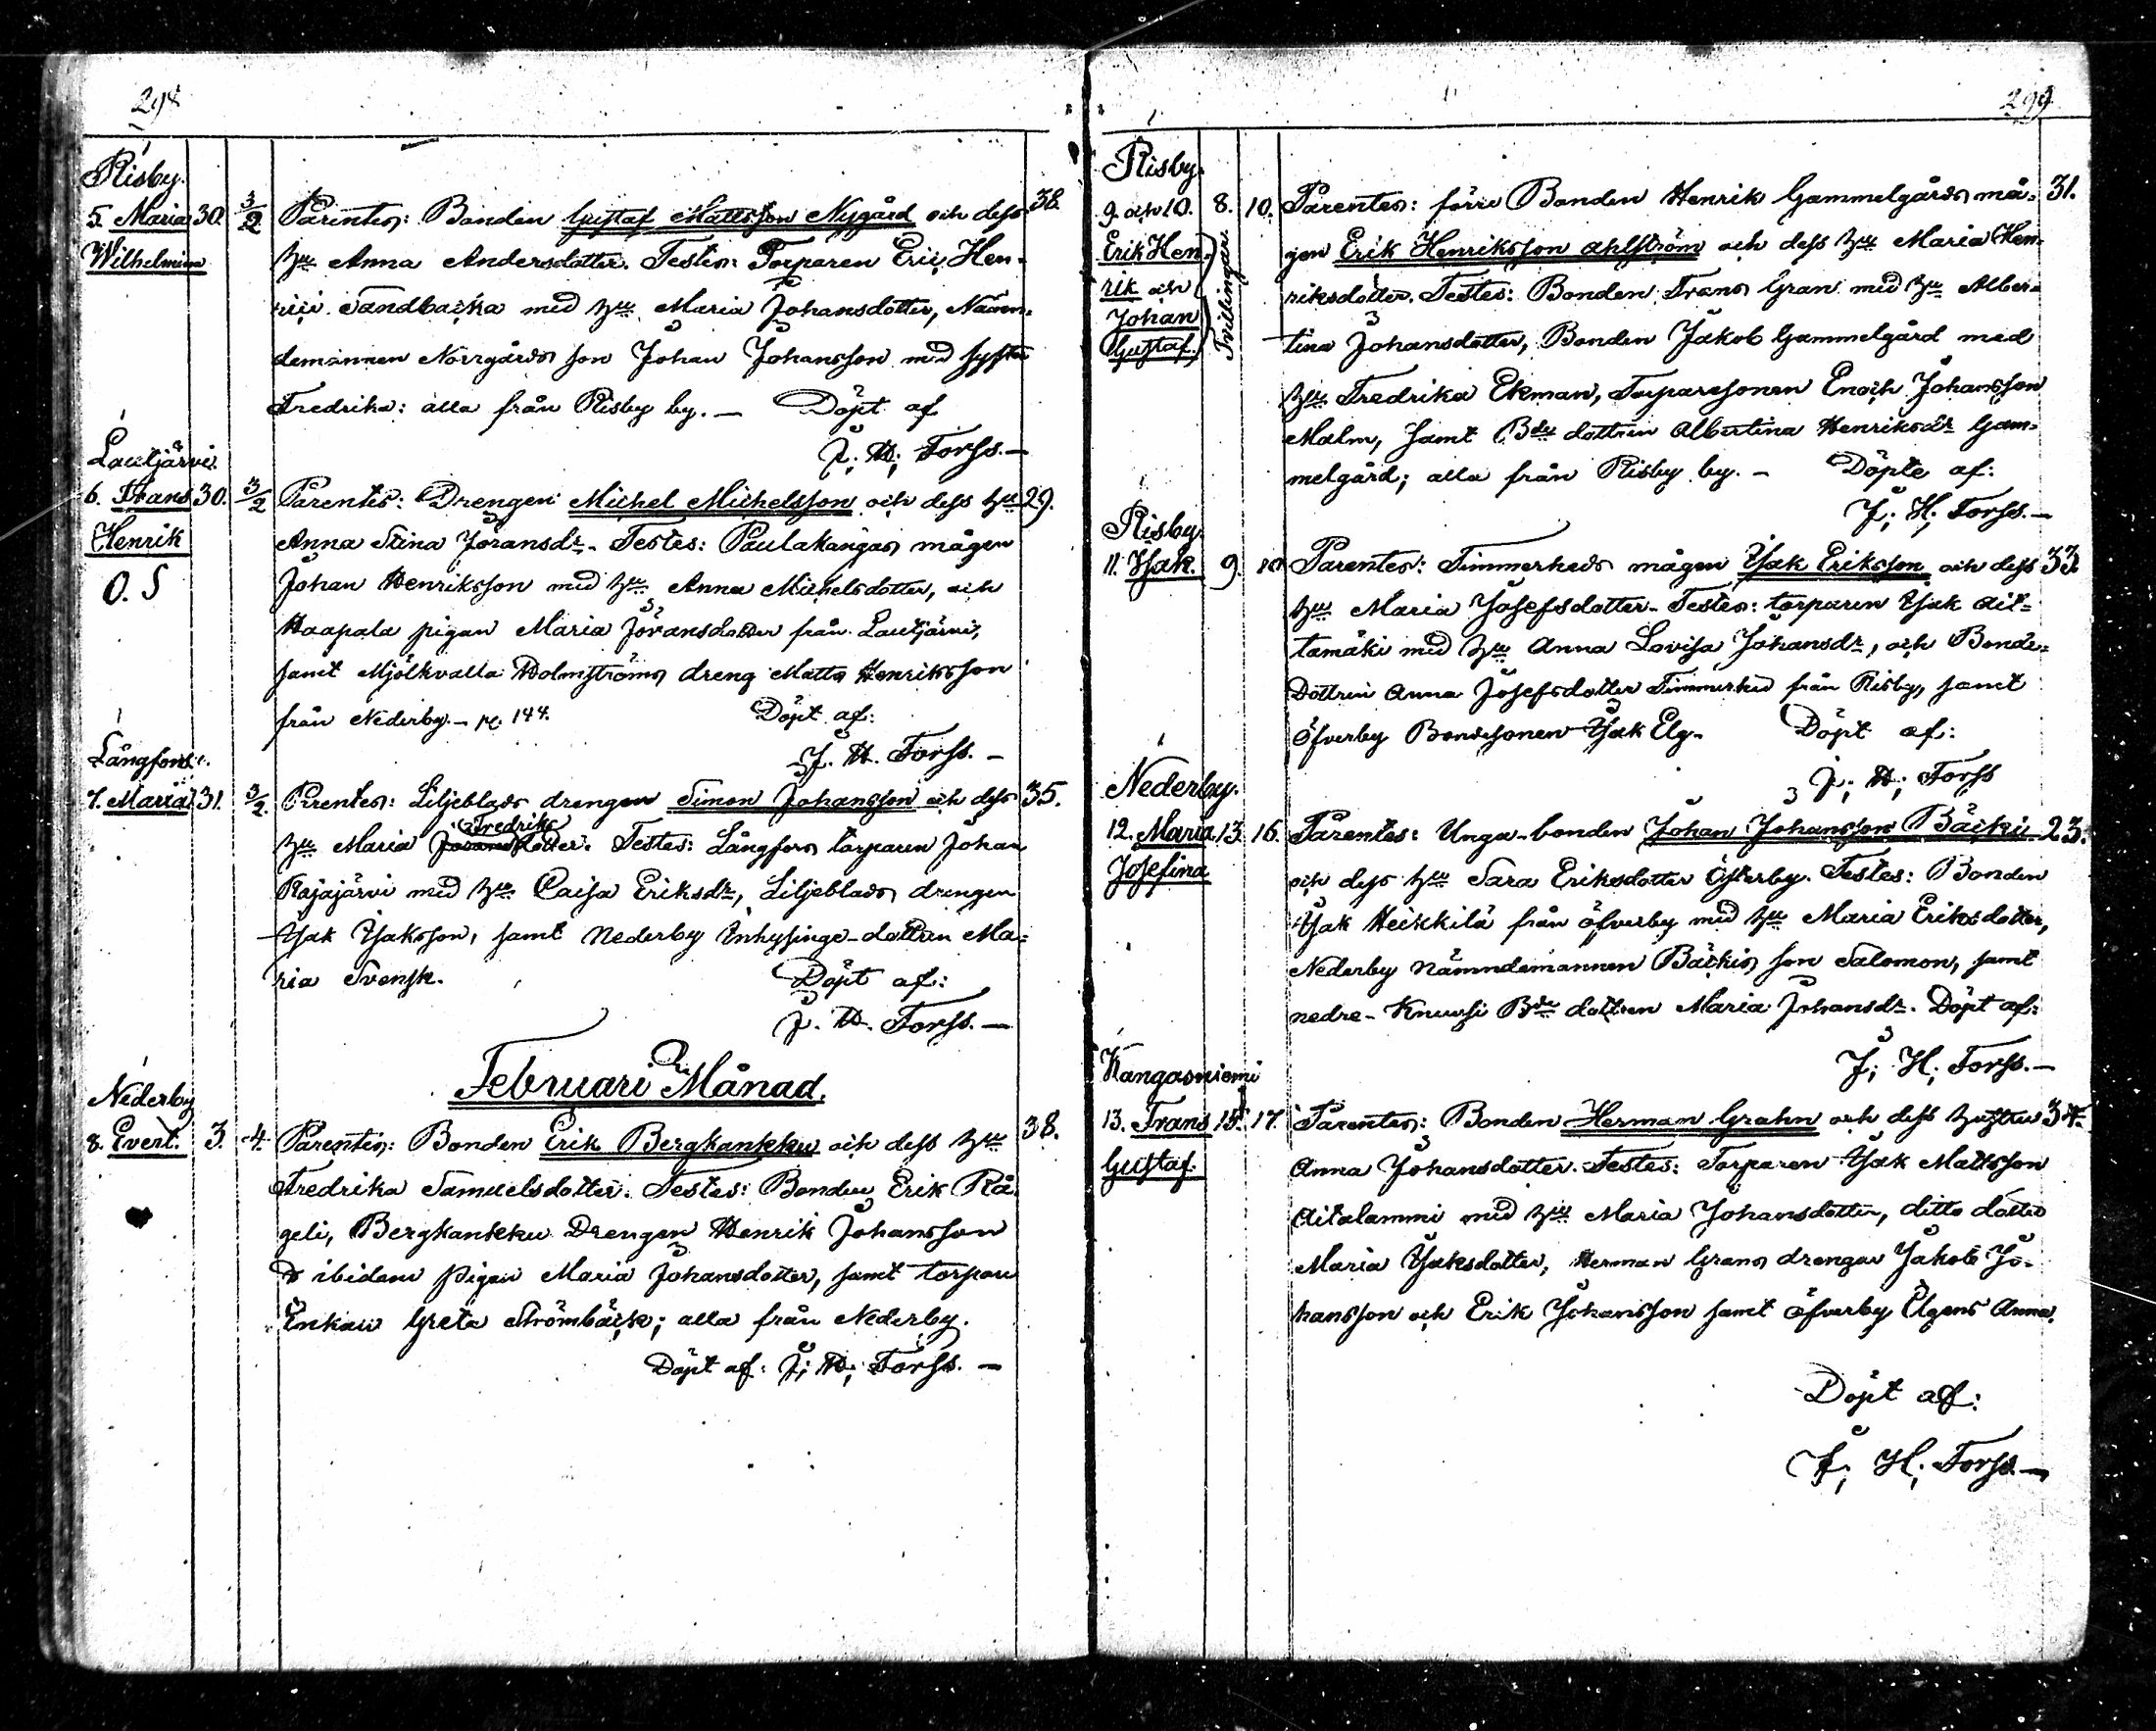 298
Risby.
5. Maria 30. 3/2 Parentes: Bonden Gustaf Mattsson Nygård och dess 38.
Wilhelmina
hu Anna Andersdotter. Testes: Torparen Eric Hen-
rici Sandbacka med hu Maria Johansdotter, Näm-
demannen Norrgårds son Johan Johansson med syster
Fredrika: alla från Risby by. — Döpt af
J. H. Forss. —
Lautjärvi.
6. Frans 30. 3/2 Parentes: Drengen Michel Michelsson och dess hu 29.
Henrik
Anna Stina Joransdr. Testes: Paulakangas mågen
O. S
Johan Henriksson med hu Anna Michelsdotter, och
Haapala pigan Maria Joransdotter från Lautjärvi,
samt Mjölkvalla Holmströms dreng Matts Henriksson
från Nederby. — p. 144. Döpt af:
J. H. Forss. —
Långfors.
7. Maria 31. 3/2. Parentes: Liljeblads drengen Simon Johansson och dess 35.
Fredriks
hu Maria Joransdotter. Testes: Långfors torparen Johan
Rajajärvi med hu Caisa Eriksdr, Liljeblads drengen
Isak Isaksson, samt Nederby Inhysinge-dottren Ma-
ria Svensk. Döpt af:
J. H. Forss. —
Februari Månad.
Nederby
8. Evert. 3. 4. Parentes: Bonden Erik Bergkankku och dess hu 38.
Fredrika Samuelsdotter. Testes: Bonden Erik Rå-
geli, Bergkankku Drengen Henrik Johansson
ibidem pigan Maria Johansdotter, samt torpare
Enkan Greta Strömbäck; alla från Nederby.
Döpt af: J. H. Forss. —
299
Risby.
9. och 10. 8. 10. Parentes: förre Bonden Henrik Gammelgårds må- 31.
Erik Hen-
rik och
Johan
Gustaf.
Tvillingar.
gen Erik Henriksson Ahlström och dess hu Maria Hen-
riksdotter. Testes: Bonden Frans Gran med hu Alber-
tina Johansdotter, Bonden Jakob Gammelgård med
hu Fredrika Ekman, Torparesonen Enoch Johansson
Malm, samt Bde dottren Albertina Henriksdr Gam-
melgård; alla från Risby by. — Döpte af:
J. H. Forss. —
Risby.
11. Isak. 9. 10 Parentes: Timmerheds mågen Isak Eriksson och dess 33.
hu Maria Josefsdotter. Testes: torparen Isak Ait-
tamäki med hu Anna Lovisa Johansdr, och Bonde-
dottren Anna Josefsdotter Timmerhed från Risby, samt
Öfverby Bondesonen Isak Elg. Döpt af:
J. H. Forss
Nederby.
12. Maria 13. 16. Parentes: Unga-bonden Johan Johansson Bäcki 23.
Josefina
och dess hu Sara Eriksdotter Österby. Testes: Bonden
Isak Heikkilä från Öfverby med hu Maria Eriksdotter,
Nederby nämndemannen Bäckis son Salomon, samt
nedre-Knuusi Bde dottren Maria Johansdr. Döpt af:
J. H. Forss. —
Kangasniemi
13. Frans 15. 17. Parentes: Bonden Herman Grahn och dess hustru 34.
Gustaf.
Anna Johansdotter. Testes: Torparen Isak Mattsson
Aitalammi med hu Maria Johansdotter, ditto dotter
Maria Isaksdotter, Herman Grans drengar Jakob Jo-
hansson och Erik Johansson samt Öfverby Elgens Anna.
Döpt af:
J. H. Forss. —